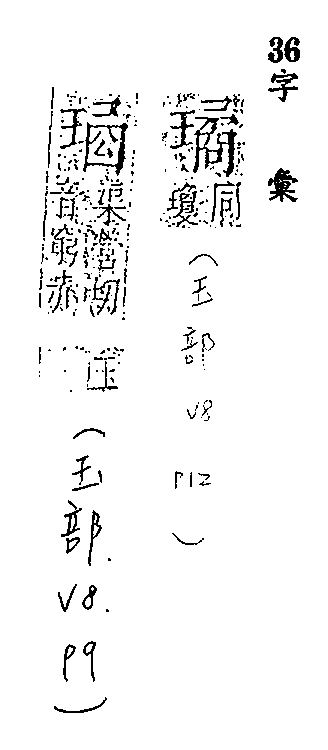 36字彙
同瓊
(玉部 V8 P12)
渠營切音窮赤玉
(玉部 V8. P9)